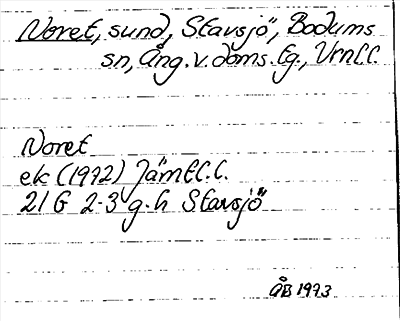 Noret, sund, Stavsjö, Bodums
sn, Ång. v. doms. tg., Vrnl.l.
Noret
ek (1972) Jämtl. l.
21 G 2-3 g-h Stavsjö
ÅB 1973